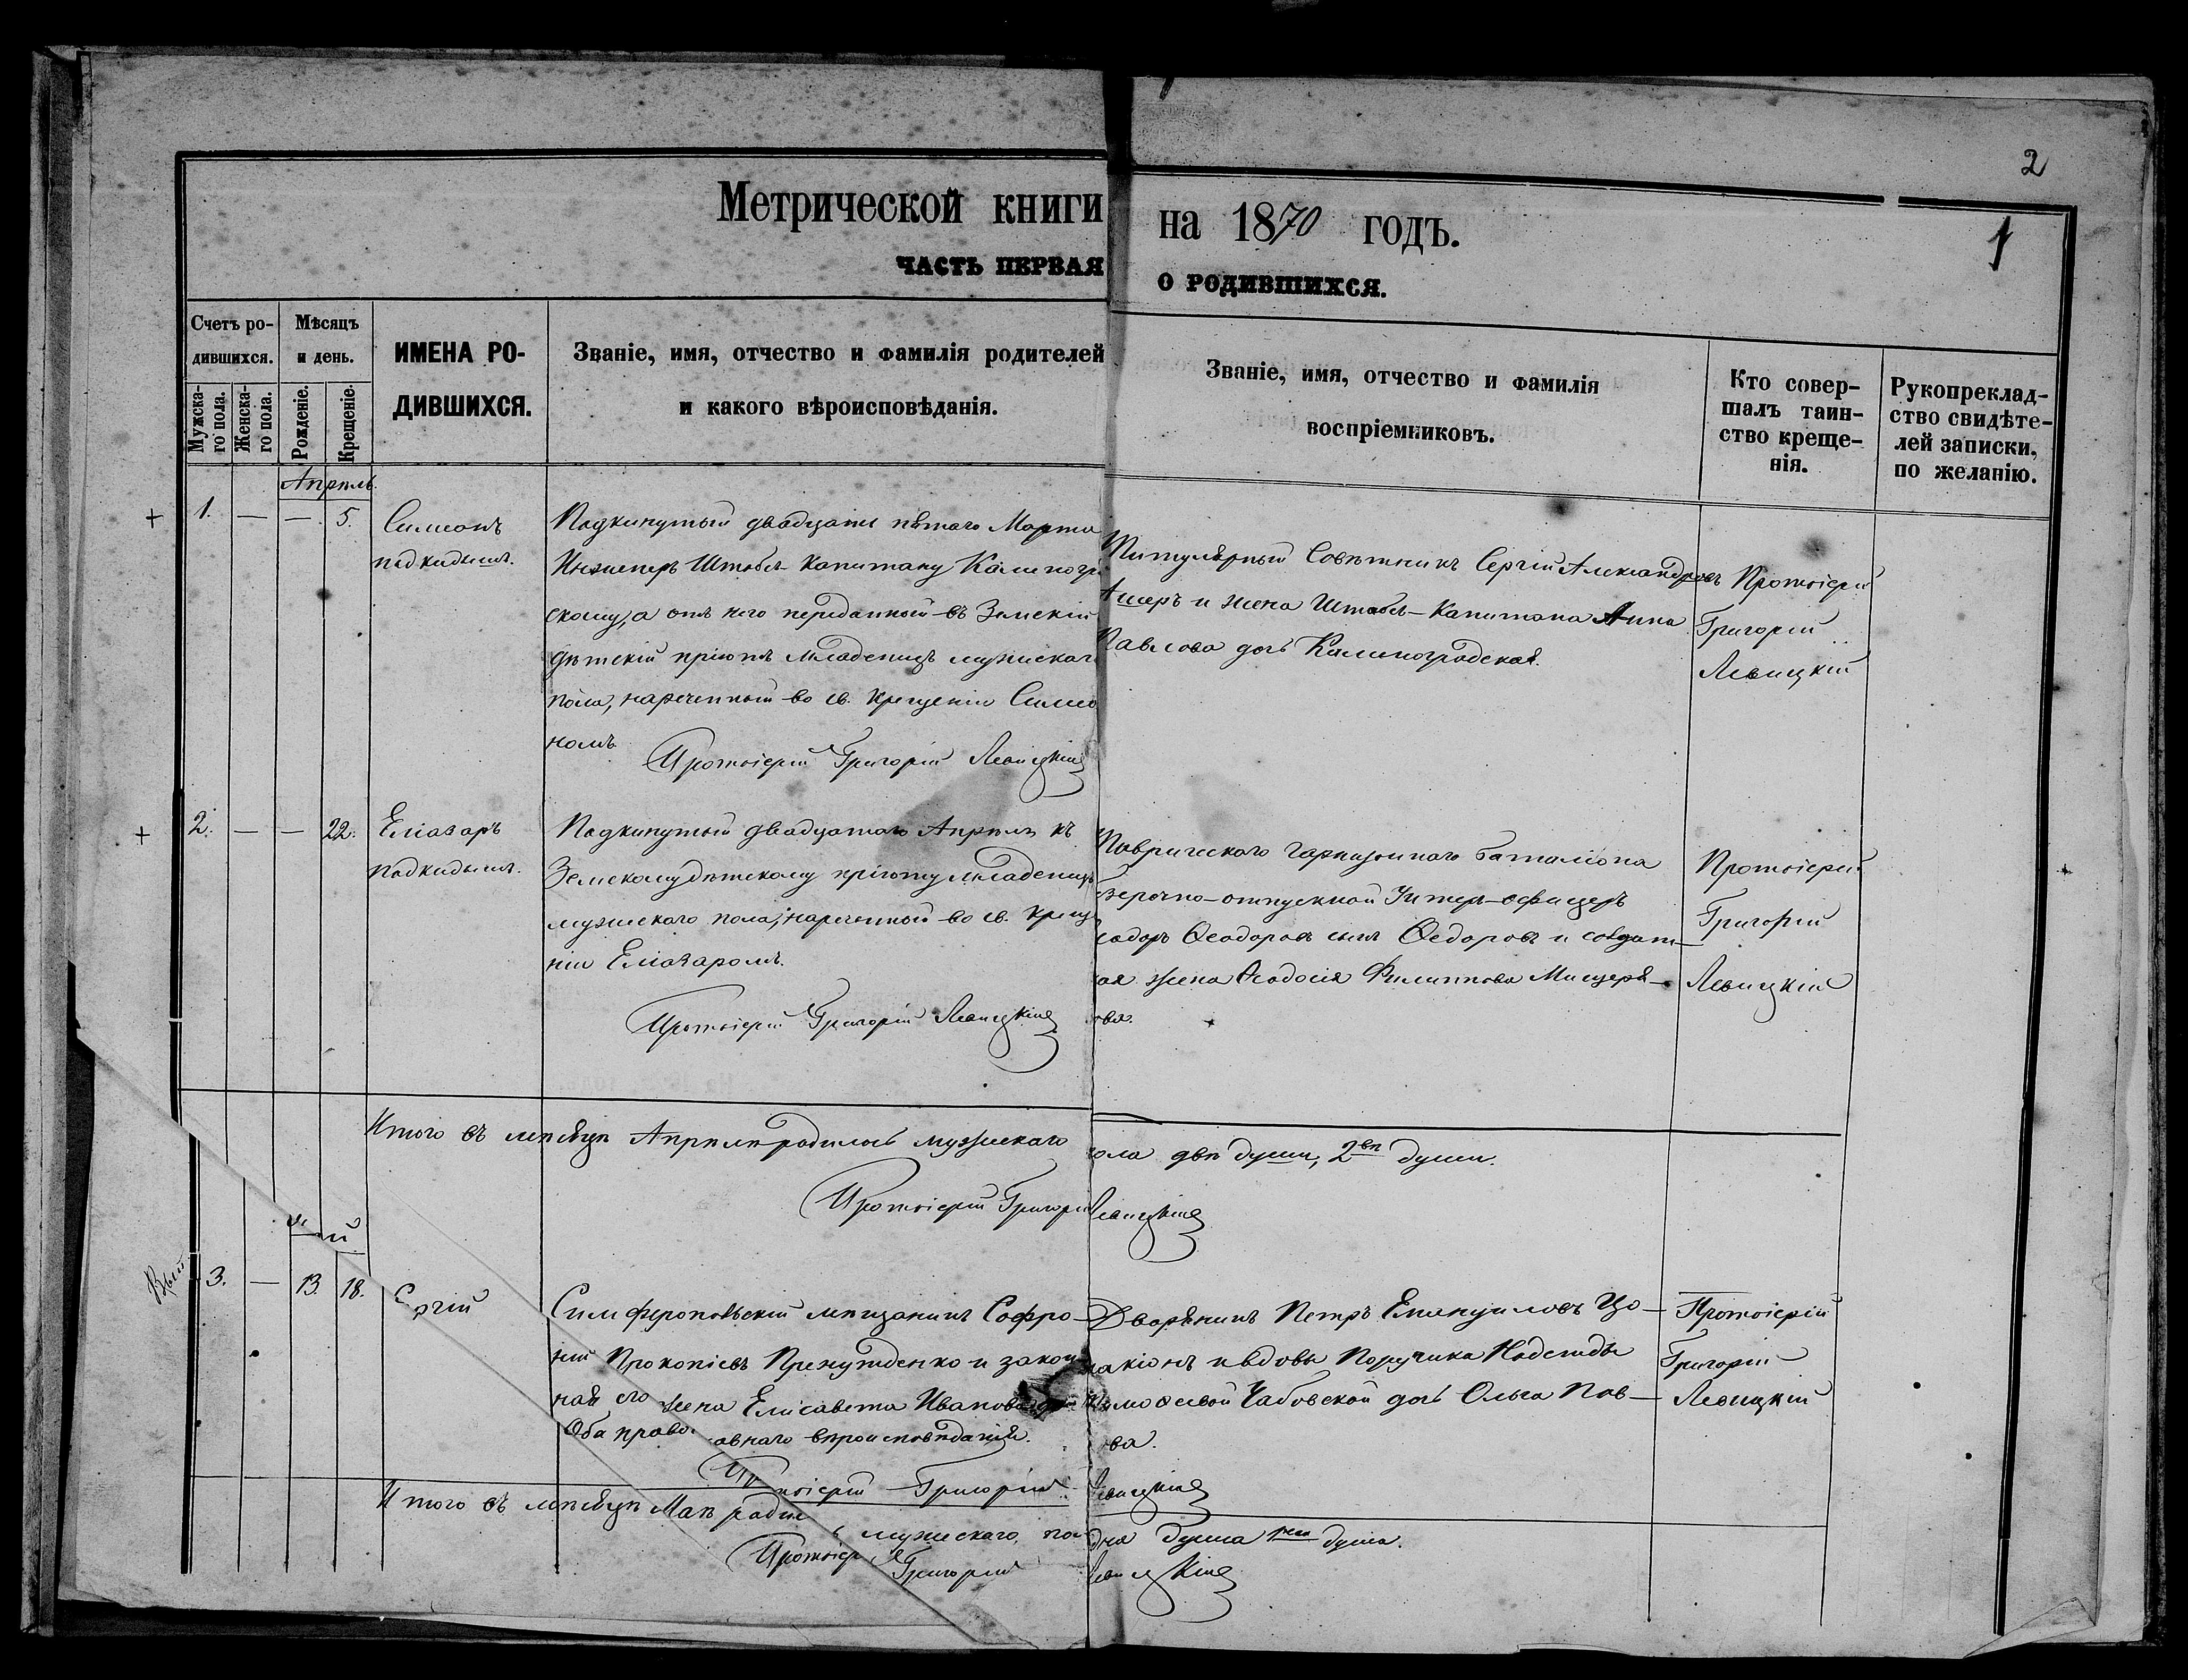 2
1
Метрической книги на 1870 годъ.
ЧАСТЬ ПЕРВАЯ О РОДИВШИХСЯ.
Счетъ ро-
дившихся.
Мѣсяцъ
и день.
Мужска-
го пола.
Женска-
го пола.
Рожденіе.
Крещеніе.
ИМЕНА РО-
ДИВШИХСЯ.
Званіе, имя, отчество и фамилія родителей
и какого вѣроисповѣданія.
Званіе, имя, отчество и фамилія
воспріемниковъ.
Кто совер-
шалъ таин-
ство креще-
нія.
Рукоприклад-
ство свидѣте-
лей записки,
по желанію.
Апрѣль.
+ 1. — — 5.
Симеонъ
подкидышъ.
Подкинутый двадцать пятаго Марта
Инженеръ Штабсъ-Капитану Калиногр
скому, а отъ него переданный въ Земскій
дѣтскій пріютъ младенецъ мужескаго
пола, нареченный во св. крещеніи Симео
номъ.
Протоіерей Григорій Левицкій
Титулярный Совѣтникъ Сергій Александровъ
и жена Штабсъ-Капитана Анна
Павлова дочь Калиноградская.
Протоіерей
Григорій
Левицкій
+ 2. — — 22.
Еліазаръ
подкидышъ.
Подкинутый двадцатаго Апрѣля къ
Земскому дѣтскому пріюту младенецъ
мужескаго пола, нареченный во св. креще
ніи Еліазаромъ.
Протоіерей Григорій Левицкій
Таврическаго гарнизоннаго баталіона
срочно-отпускной Унтеръ-офицеръ
еодоръ Ѳеодоровъ сынъ Ѳедоровъ и солдат-
ая жена Ѳеодосія Филиппова Мищеря-
ова.
Протоіерей
Григорій
Левицкій
Итого въ мѣсяцѣ Апрѣлѣ родилось мужескаго пола двѣ души, 2вѣ души.
Протоіерей Григорій Левицкій
3. — 13. 18.
Сергій
Симферопольскій мѣщанинъ Софро-
ній Прокопіевъ и закон
ная его жена Елисавета Иванова
Оба православнаго вѣроисповѣданія.
Протоіерей Григорій Левицкій
Дворянинъ Петръ Емануиловъ Цо-
акіонъ и вдовы Поручика Надежды
Чабовской дочь Ольга Пав-
ова.
Протоіерей
Григорій
Левицкій
Итого въ мѣсяцѣ Маѣ родилось мужескаго по одна душа 1на душа.
Протоіерей Григорій Левицкій